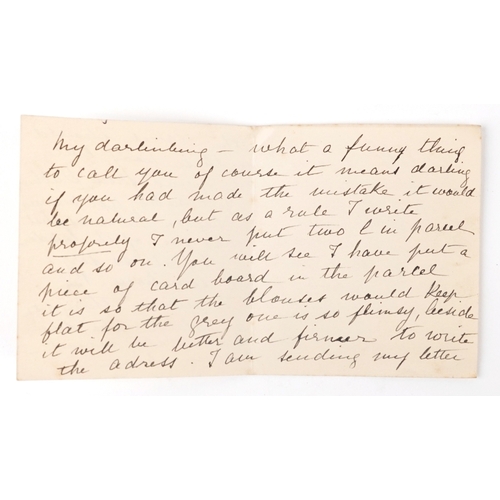 My darlintling – what a funny thing
to call you of course it means darling
if you had made the mistake it would
be natural, but as a rule I write
properely I never put two l in parcel
and so on. You will see I have put a
piece of card board in the parcel
it is so that the blouses would keep
flat for the grey one is so flimsy, beside
it will be better and firmer to write
the adress. I am sending my letter